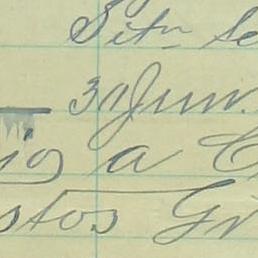 Sitn Se
31 Jun.
ios a C
stos Gr